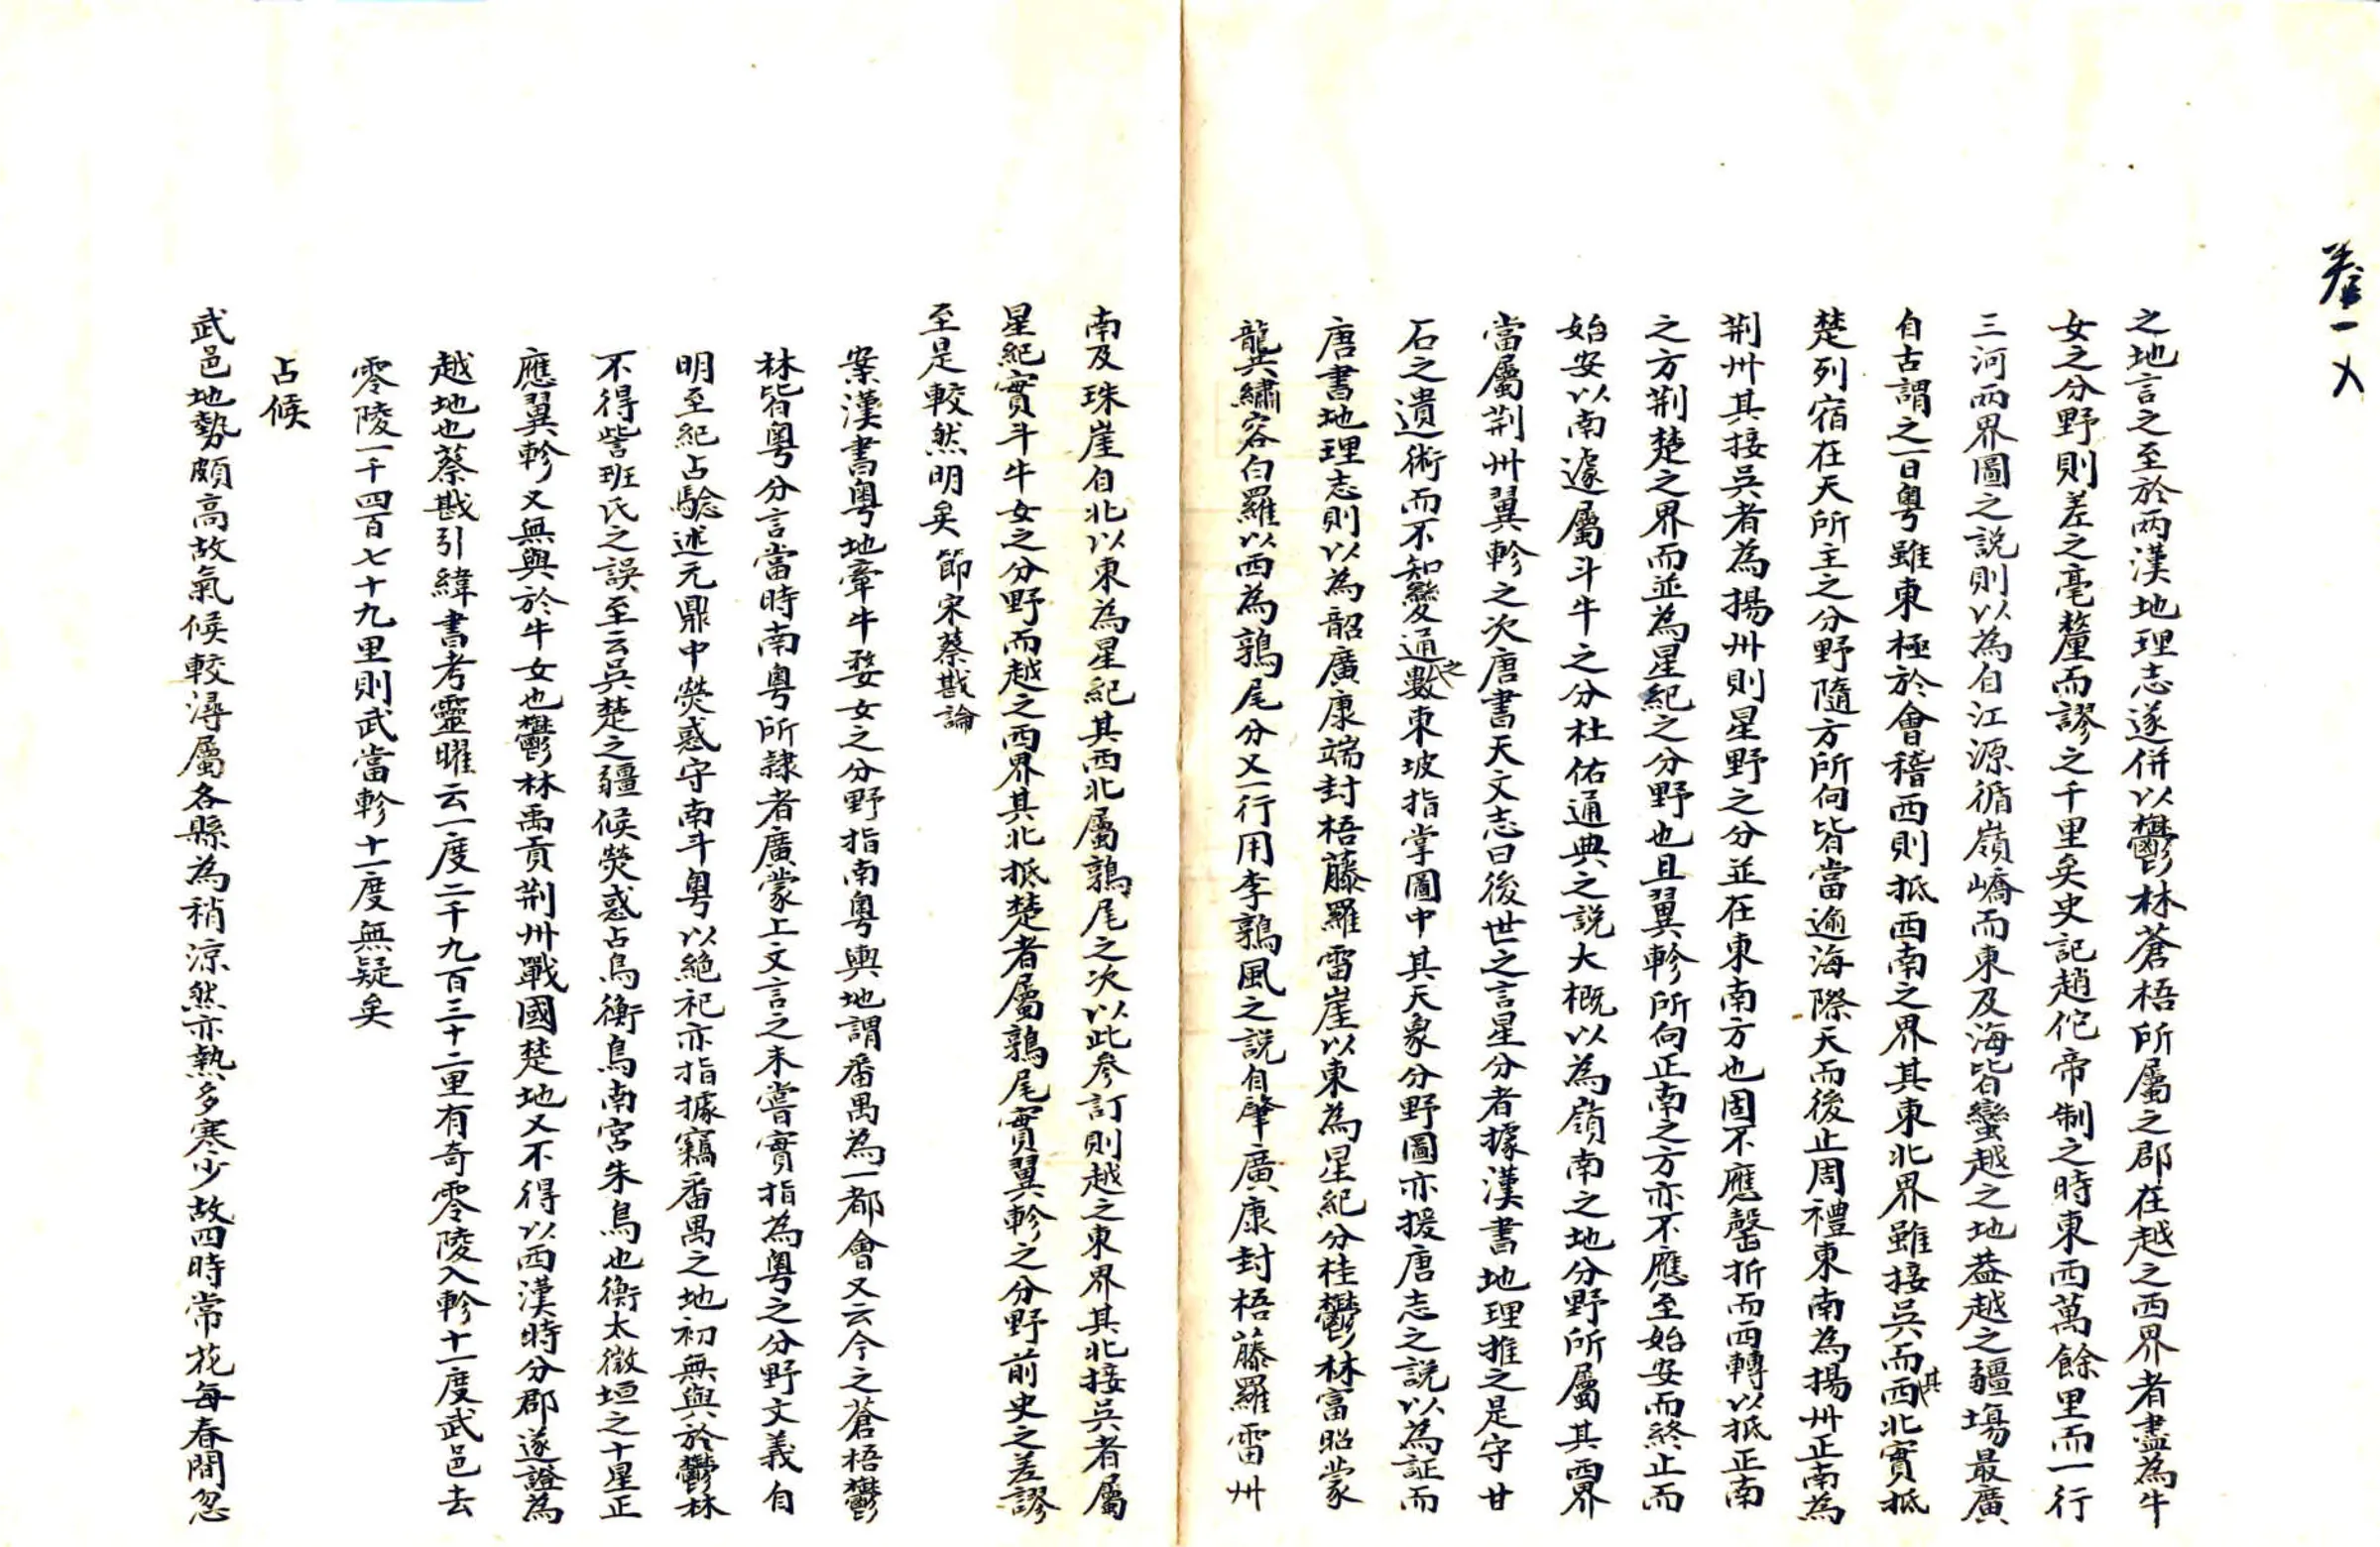 卷一
乂
之地言之至於两漢地理志遂併以鬱林蒼梧所屬之郡在越之西界者盡為牛
女之分野則差之毫釐而謬之千里矣史記趙佗帝制之時東西萬餘里而一行
三河两界圖之説則以為自江源循嶺嶠而東及海皆蠻越之地葢越之疆塲最廣
自古謂之一曰粤雖東極於會稽西則抵西南之界其東北界雖接吳而其西北實抵
楚列宿在天所主之分野隨方所向皆當逾海際天而後止周禮東南為揚州正南為
荆州其接吳者為揚州則星野之分並在東南方也固不應罄折而西轉以抵正南
之方荆楚之界而並為星紀之分野也且翼軫所向正南之方亦不應至始安而終止而
始安以南遽屬斗牛之分杜佑通典之説大概以為嶺南之地分野所屬其西界
當屬荆州翼軫之次唐書天文志曰後世之言星分者據漢書地理推之是守甘
石之遺術而不知變通之數東坡指掌圖中其天象分野圖亦援唐志之説以為証而
唐書地理志則以為韶廣康端封梧藤羅雷崖以東為星紀分桂鬱林富昭蒙
龍共繡容白羅以西為鶉尾分又一行用李鶉風之説自肇廣康封梧藤羅雷州
南及珠崖自北以東為星紀其西北屬鶉尾之次以此參訂則越之東界其北接吳者屬
星紀實斗牛女之分野而越之西界其北抵楚者屬鶉尾實翼軫之分野前史之差謬
至是較然明矣 節宋蔡戡論
案漢書粤地牽牛婺女之分野指南粤輿地謂番禺為一都會又云今之蒼梧鬱
林皆粤分言當時南粤所隷者廣蒙上文言之未嘗實指為粤之分野文義自
明至紀占驗述元鼎中熒惑守南斗粤以絕祀亦指據竊番禺之地初無與於鬱林
不得訾班氏之誤至云吳楚之疆候熒惑占鳥衡鳥南宮朱鳥也衡太微垣之十星正
應翼軫又無與於牛女也鬱林禹貢荆州戰國楚地又不得以西漢時分郡遂證為
越地也蔡戡引緯書考靈曜云一度二千九百三十二里有奇零陵入軫十一度武邑去
零陵一千四百七十九里則武當軫十一度無疑矣
占候
武邑地勢頗高故氣候較潯屬各縣為稍涼然亦熱多寒少故四時常花每春間忽